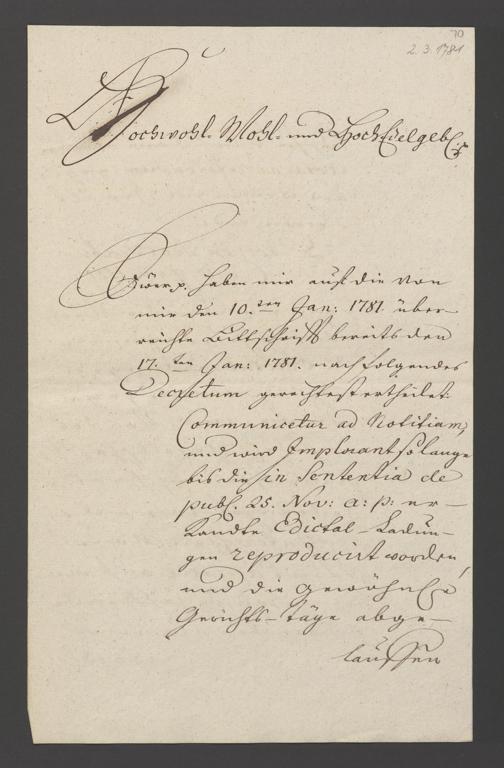 70
2. 3. 1781
Hochwohl- Wohl- und HochEdelgeb.
Euer p. haben mir auf die von
mir den 10.ten Jan: 1781. über-
reichte Bittschrifft bereits den
17.ten Jan: 1781. nachfolgendes
Decretum gerechtest ertheilet:
Communicetur ad Notitiam,
und wird Implorant solange
bis die in Sententia de
publ. 25. Nov: a: p: er-
kandte Edictal-Ladun-
gen reproducirt worden,
und die gewöhnl.
Gerichts-täge abge-
lauffen